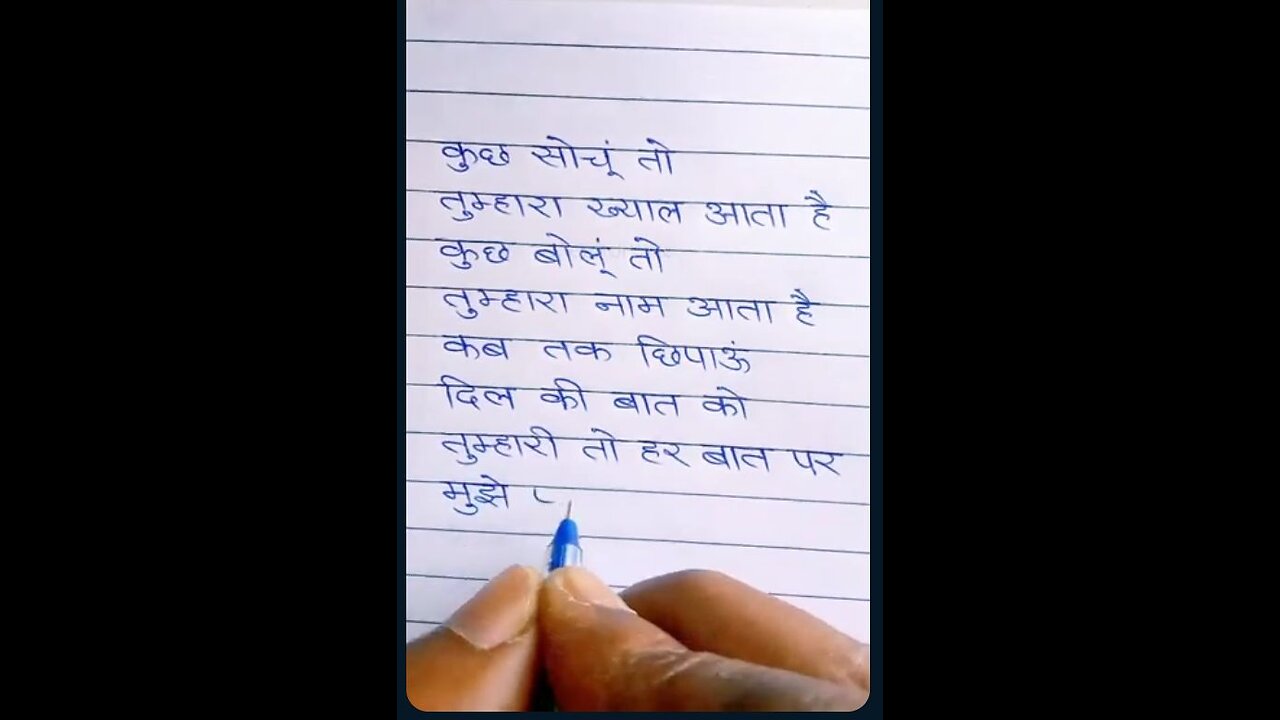 कुछ सोचूं तो
तुम्हारा ख्याल आता है
कुछ बोलूं तो
तुम्हारा नाम आता है
कब तक छिपाऊं
दिल की बात को
तुम्हारी तो हर बात पर
मुझे